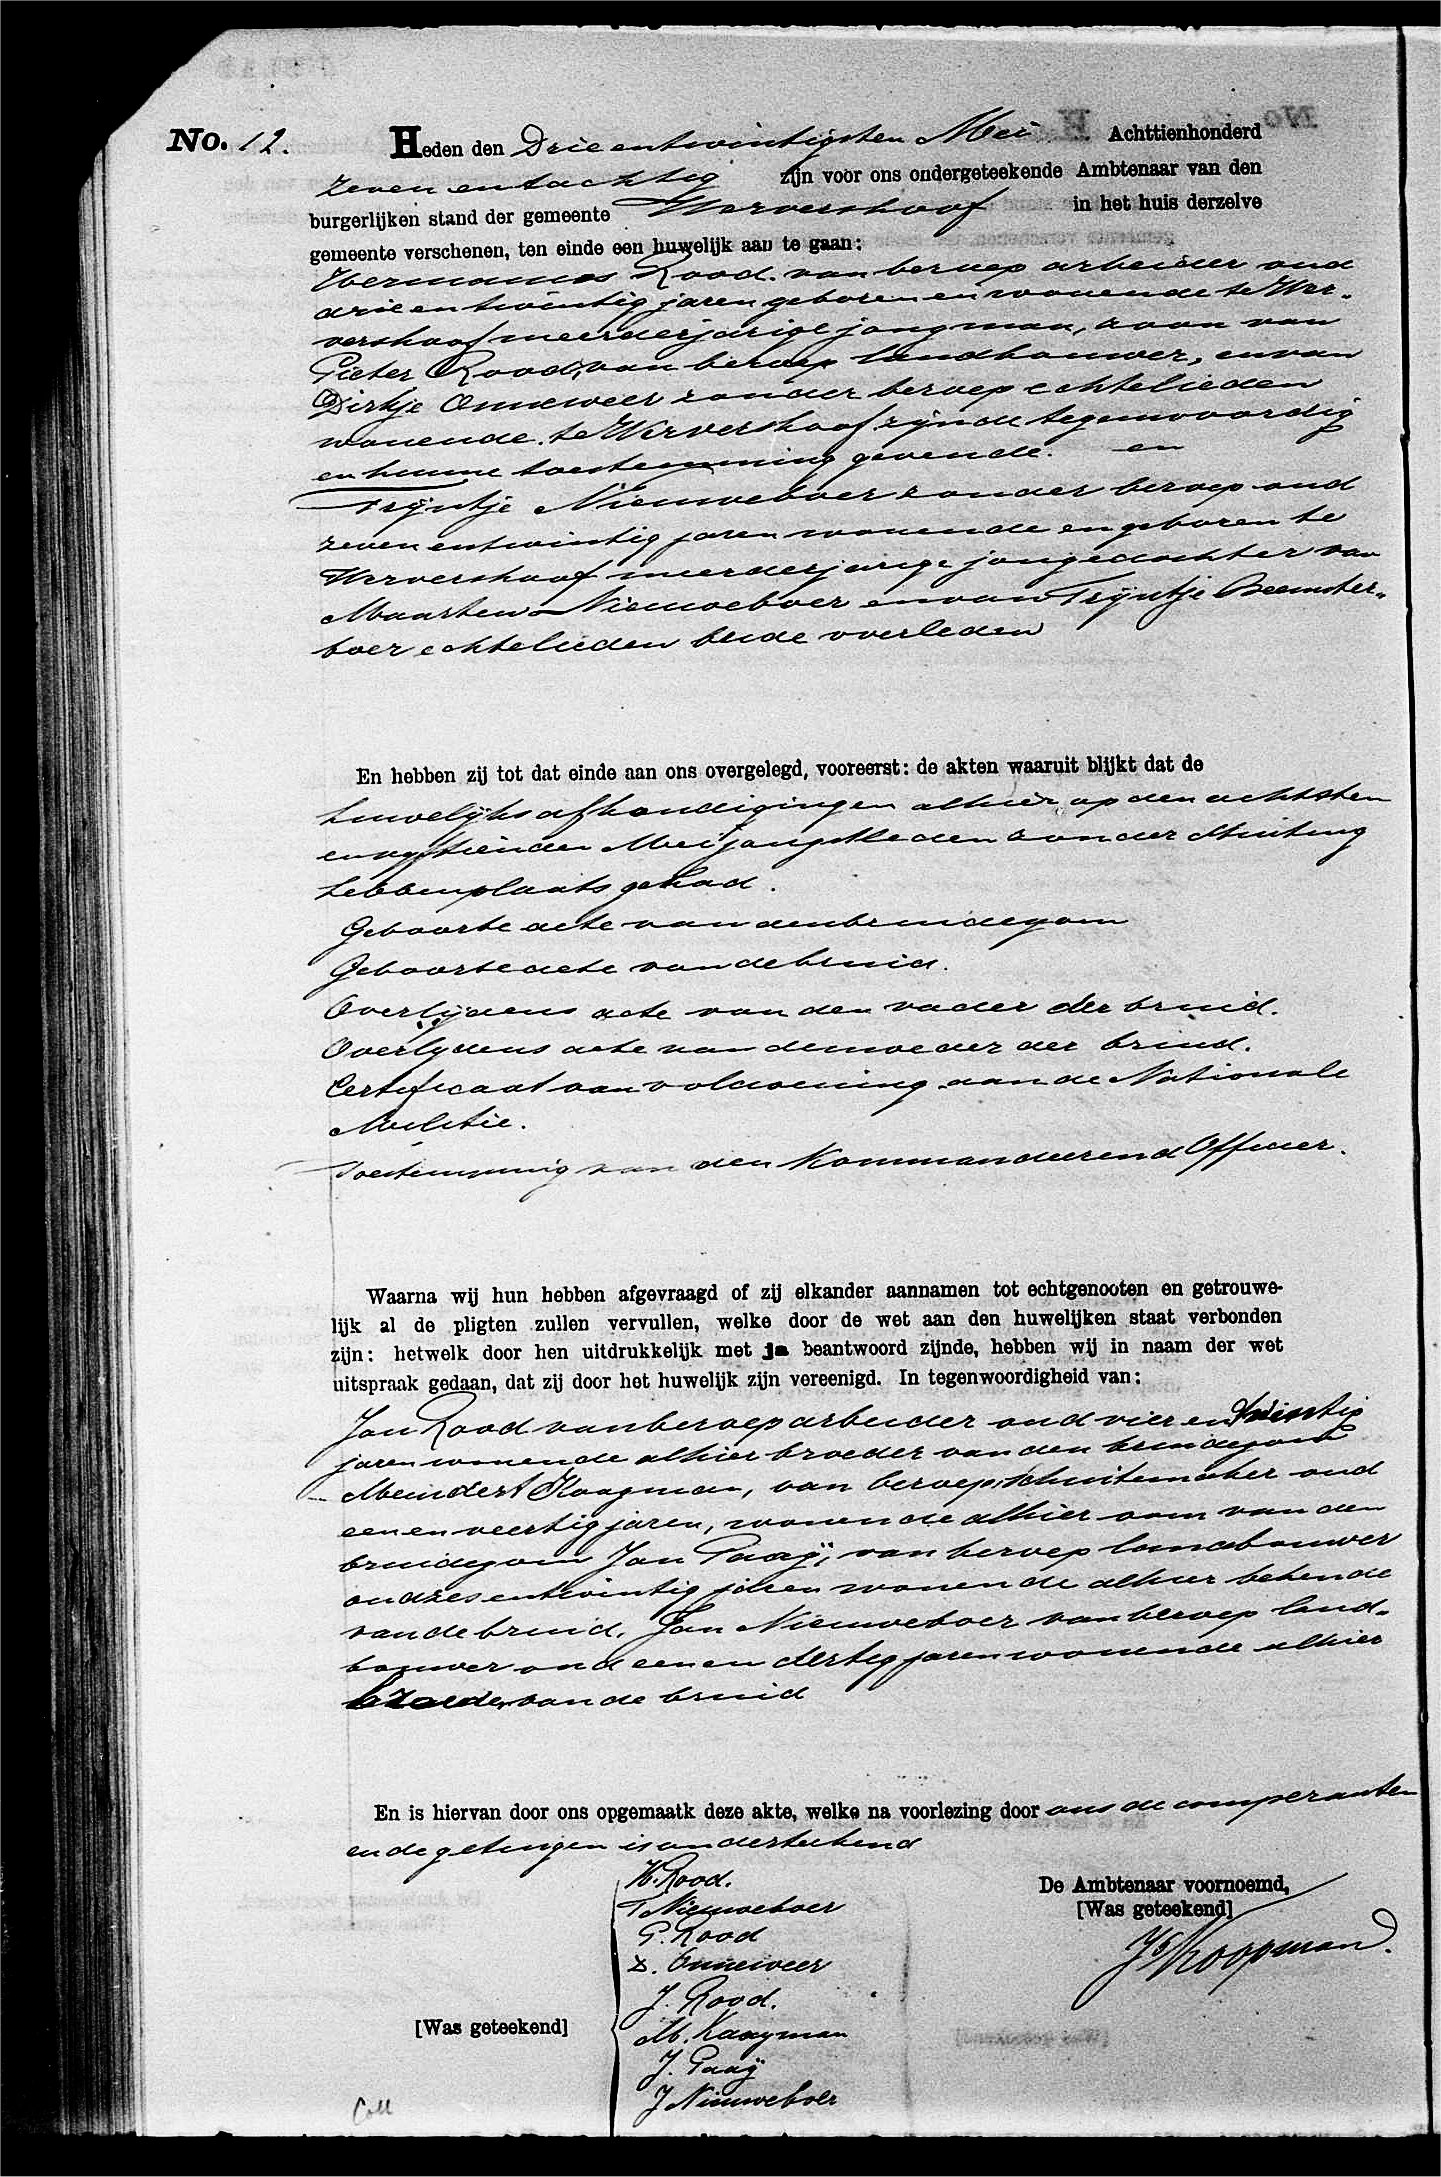 No. 12. Heden den Drie entwintigsten Mei Achttienhonderd
zeven entachtig zijn voor ons ondergeteekende Ambtenaar van den
burgerlijken stand der gemeente Wervershoof in het huis derzelve
gemeente verschenen, ten einde een huwelijk aan te gaan:
Hermanus Rood. van beroep arbeider oud
drie en twintig jaren geboren en wonende te Wer-
vershoof meerderjarige jongman, zoon van
Pieter Rood, van beroep landbouwer, en van
Dirkje Onneweer zonder beroep echtelieden
wonende te Wervershoof zijnde tegenwoordig
en hunne toestemming gevende. en
Trijntje Nieuweboer zonder beroep oud
zeven entwintig jaren wonende en geboren te
Wervershoof meerderjarige jongedochter van
Maarten Nieuweboer en van Trijntje Beemster-
boer echtelieden beide overleden
En hebben zij tot dat einde aan ons overgelegd, vooreerst: de akten waaruit blijkt dat de
huwelijksafkondigingen alhier op den achtsten
en vijftienden Mei jongstleden zonder stuiting
hebben plaats gehad.
Geboorte acte van den bruidegom
Geboorteacte van de bruid.
Overlijdens acte van den vader der bruid.
Overlijdens acte van de moeder der bruid.
Certificaat van voldoening aan de Nationale
Militie.
Toestemming van den Kommandeerend Officier.
Waarna wij hun hebben afgevraagd of zij elkander aannamen tot echtgenooten en getrouwe-
lijk al de pligten zullen vervullen, welke door de wet aan den huwelijken staat verbonden
zijn: hetwelk door hen uitdrukkelijk met ja beantwoord zijnde, hebben wij in naam der wet
uitspraak gedaan, dat zij door het huwelijk zijn vereenigd. In tegenwoordigheid van:
Jan Rood van beroep arbeider oud vier en twintig
jaren wonende alhier broeder van den bruidegom
Meindert Kaagman, van beroep schuitemaker oud
een en veertig jaren, wonende alhier oom van den
bruidegom Jan Paaij, van beroep landbouwer
oud zes entwintig jaren wonende alhier bekende
van de bruid, Jan Nieuweboer van beroep land-
bouwer oud een en dertig jaren wonende alhier
broeder van de bruid
En is hiervan door ons opgemaatk deze akte, welke na voorlezing door ons de comperanten
en de getuigen is onderteekend
H. Rood.
T Nieuweboer
P. Rood
D. Onneweer
J. Rood.
M. Kaagman
J. Paaij
J Nieuweboer
[Was geteekend]
De Ambtenaar voornoemd,
[Was geteekend]
Js Koopman.
Coll